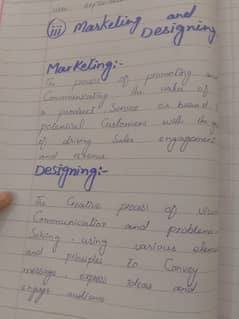 (iii) Marketing and
Designing
Marketing:-
The process of promoting and
Communicating the value of
a product, Service or brand
potential Customers with the
of driving Sales engagement
and revenue
Designing:-
The Creative process of
Communication and problem
Solving using various
and principles To Convey
message, express ideas and
engage audience